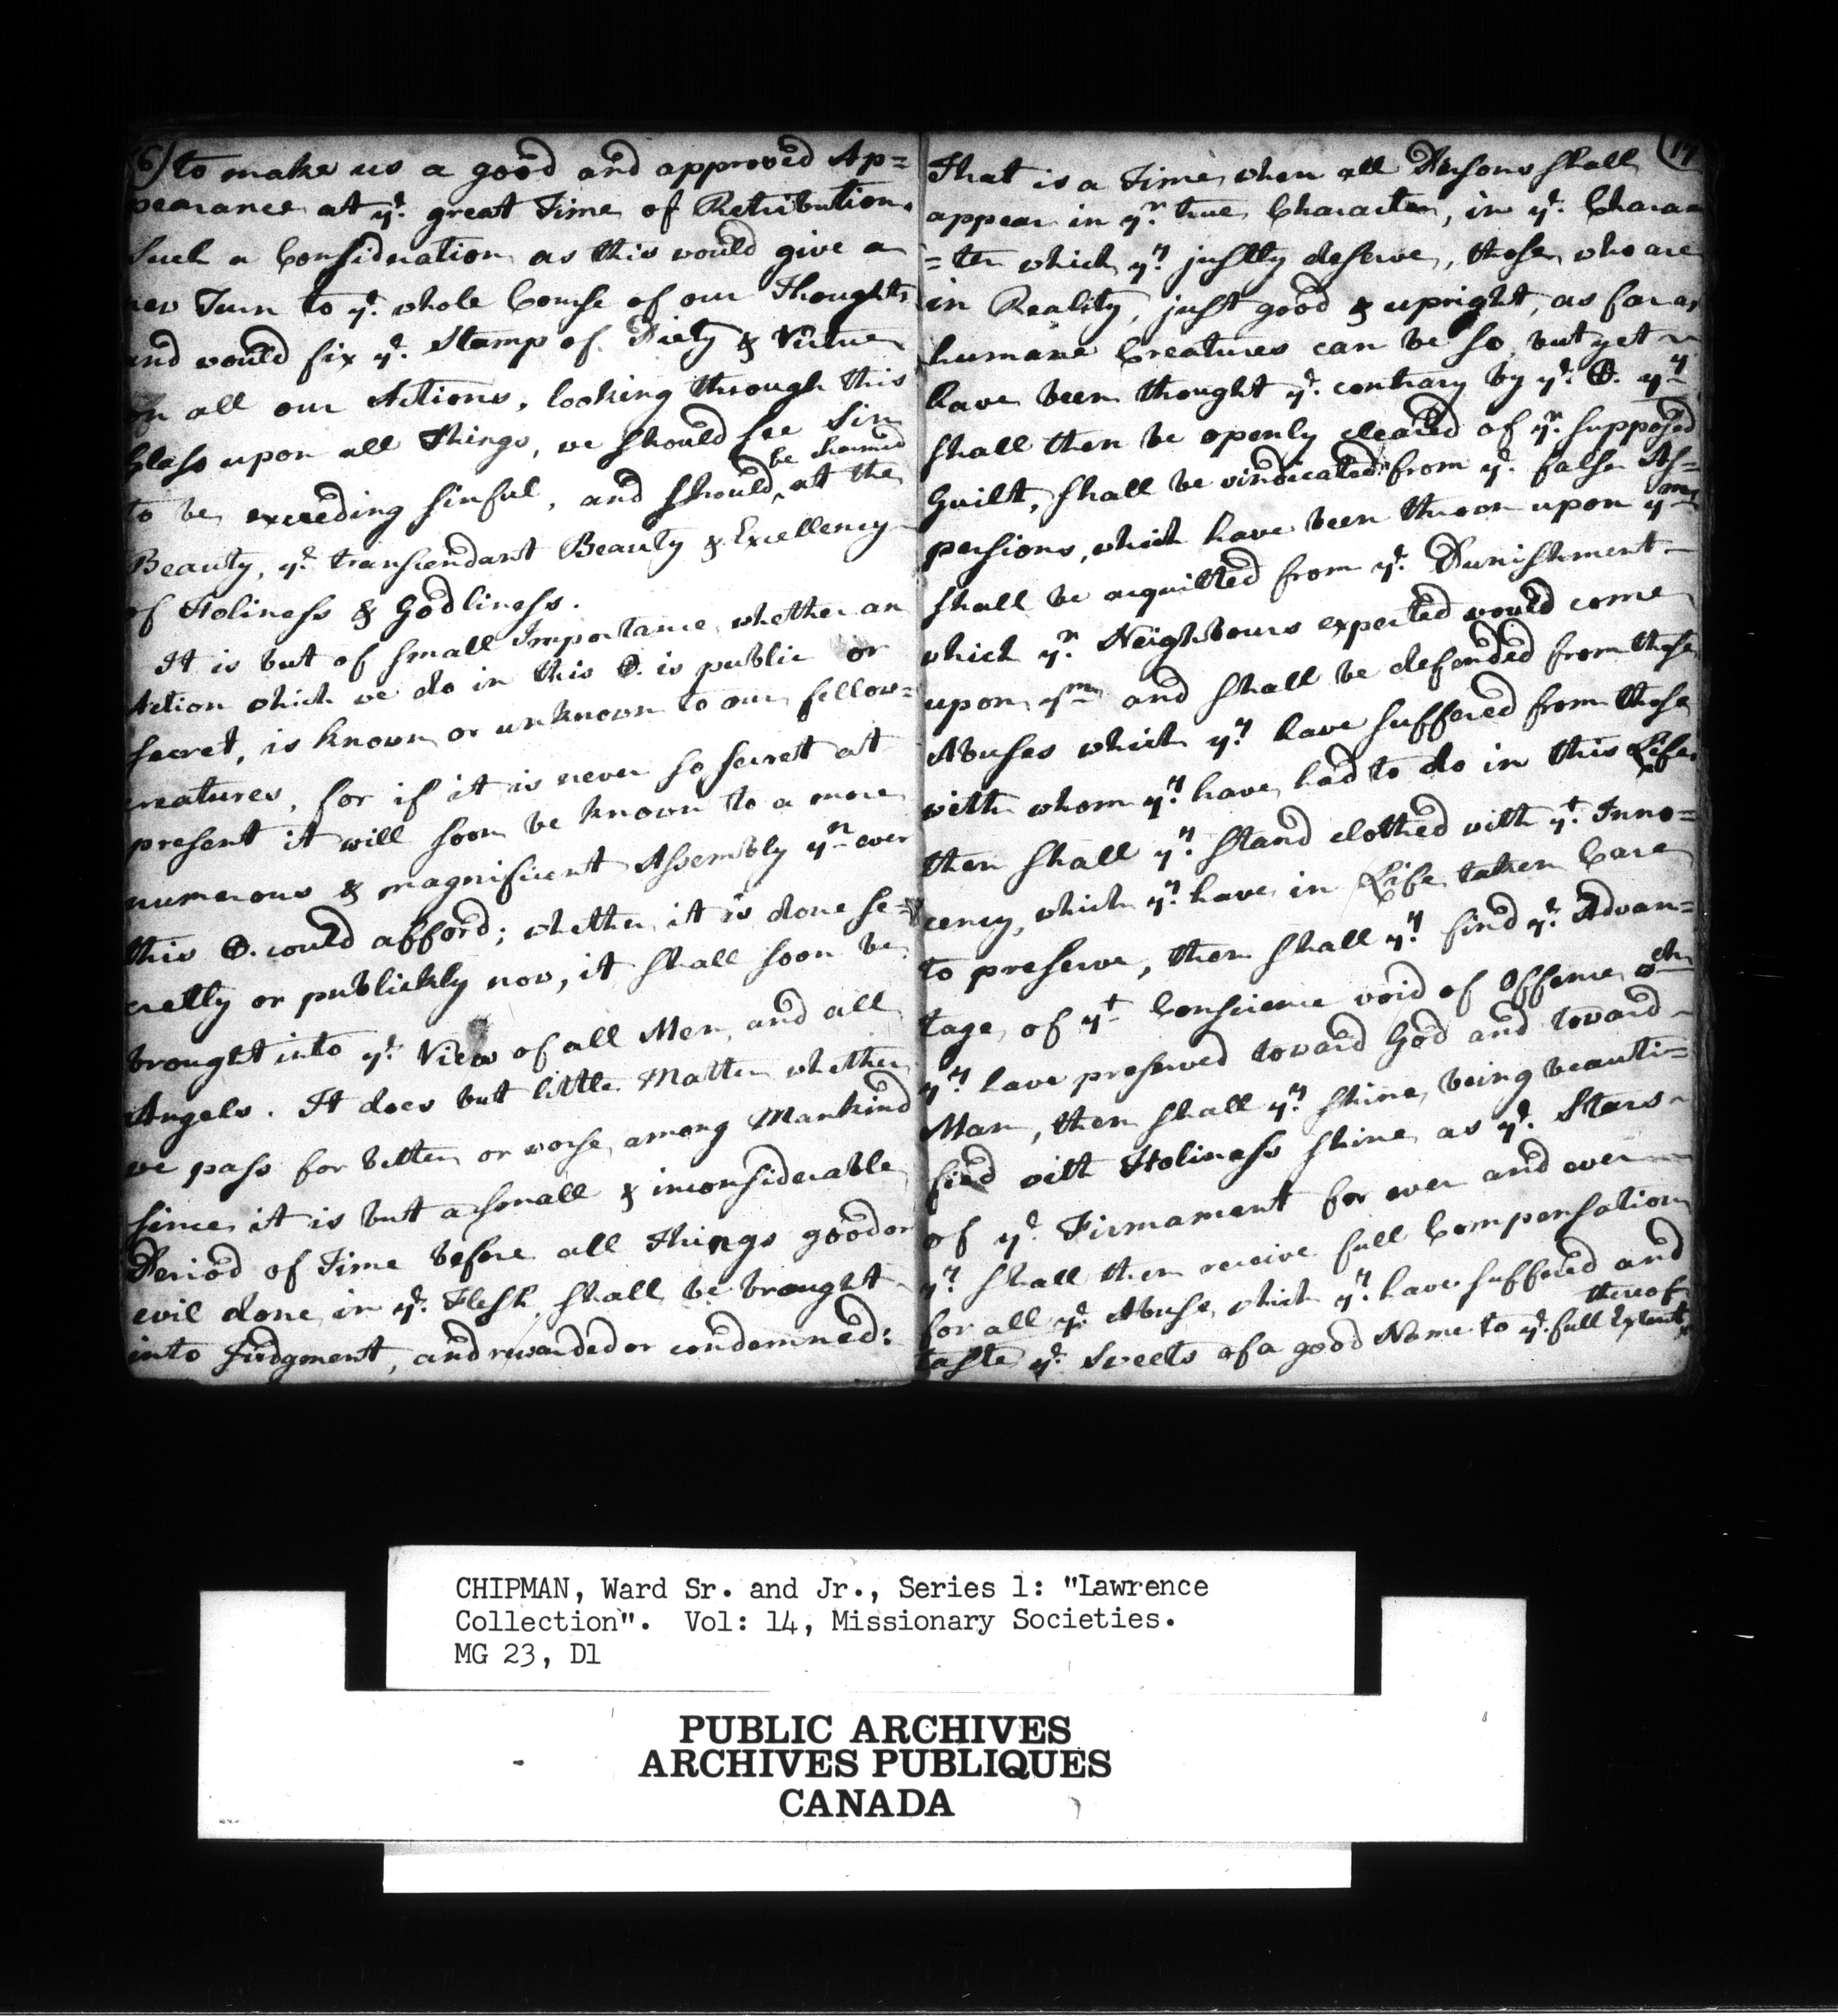 (6) to make us a good and approved Ap=
pearance at ye. great Time of Retribution.
Such a Consideration as this would give a
new Turn to ye. whole Course of our Thoughts
and would fix ye. Stamp of Piety & Virtue
on all our Actions, looking through this
Glass upon all Things, we should see Sin
to be exceeding sinful, and should be charmed at the
Beauty, ye. transcendant Beauty & Excellency
of Holiness & Godliness.
It is but of small Importance whether an
Action which we do in this Ꙩ. is public or
secret, is known or unknown to our fellow=
creatures, for if it is never so secret at
present it will soon be known to a more
numerous & magnificent Assembly yn ever
this Ꙩ. could afford; whether it is done se=
cretly or publickly now, it shall soon be
brought into ye. View of all Men, and all
Angels. It does but little Matter whether
we pass for better or worse among Mankind
since it is but a small & inconsiderable
Period of Time before all Things good or
evil done in ye. Flesh, shall be brought
into Judgment, and rewarded or condemned:
17
That is a Time when all Persons shall
appear in yr. true Character, in ye. Charac
=ter which yy. justly deserve, those who are
in Reality, just good & upright, as far as
humane Creatures can be so, but yet
have been thought ye. contrary by ye. Ꙩ. yy
shall then be openly cleared of yr. supposed
Guilt, shall be vindicated from ye. false As=
persions, which have been thrown upon ym
shall be acquitted from ye. Punishment
which yr. Neighbours expected would come
upon ym and shall be defended from those
Abuses which yy. have suffered from those
with whom yy. have had to do in this Life.
then shall yy. stand clothed with yt. Inno=
cency, which yy. have in Life taken Care
to preserve, then shall yy. find ye. Advan=
tage of yt Conscience void of Offence wch
yy. have preserved toward God and toward
Man, then shall yy. shine, being beauti=
fied with Holiness shine as ye. Stars
of ye. Firmament for ever and ever
yy. shall then receive full Compensation
for all ye. Abuse which yy. have suffered and
taste ye. Sweets of a good Name to ye. full Extent thereof
CHIPMAN, Ward Sr. and Jr., Series 1: "Lawrence
Collection". Vol: 14, Missionary Societies.
MG 23, D1
PUBLIC ARCHIVES
ARCHIVES PUBLIQUES
CANADA